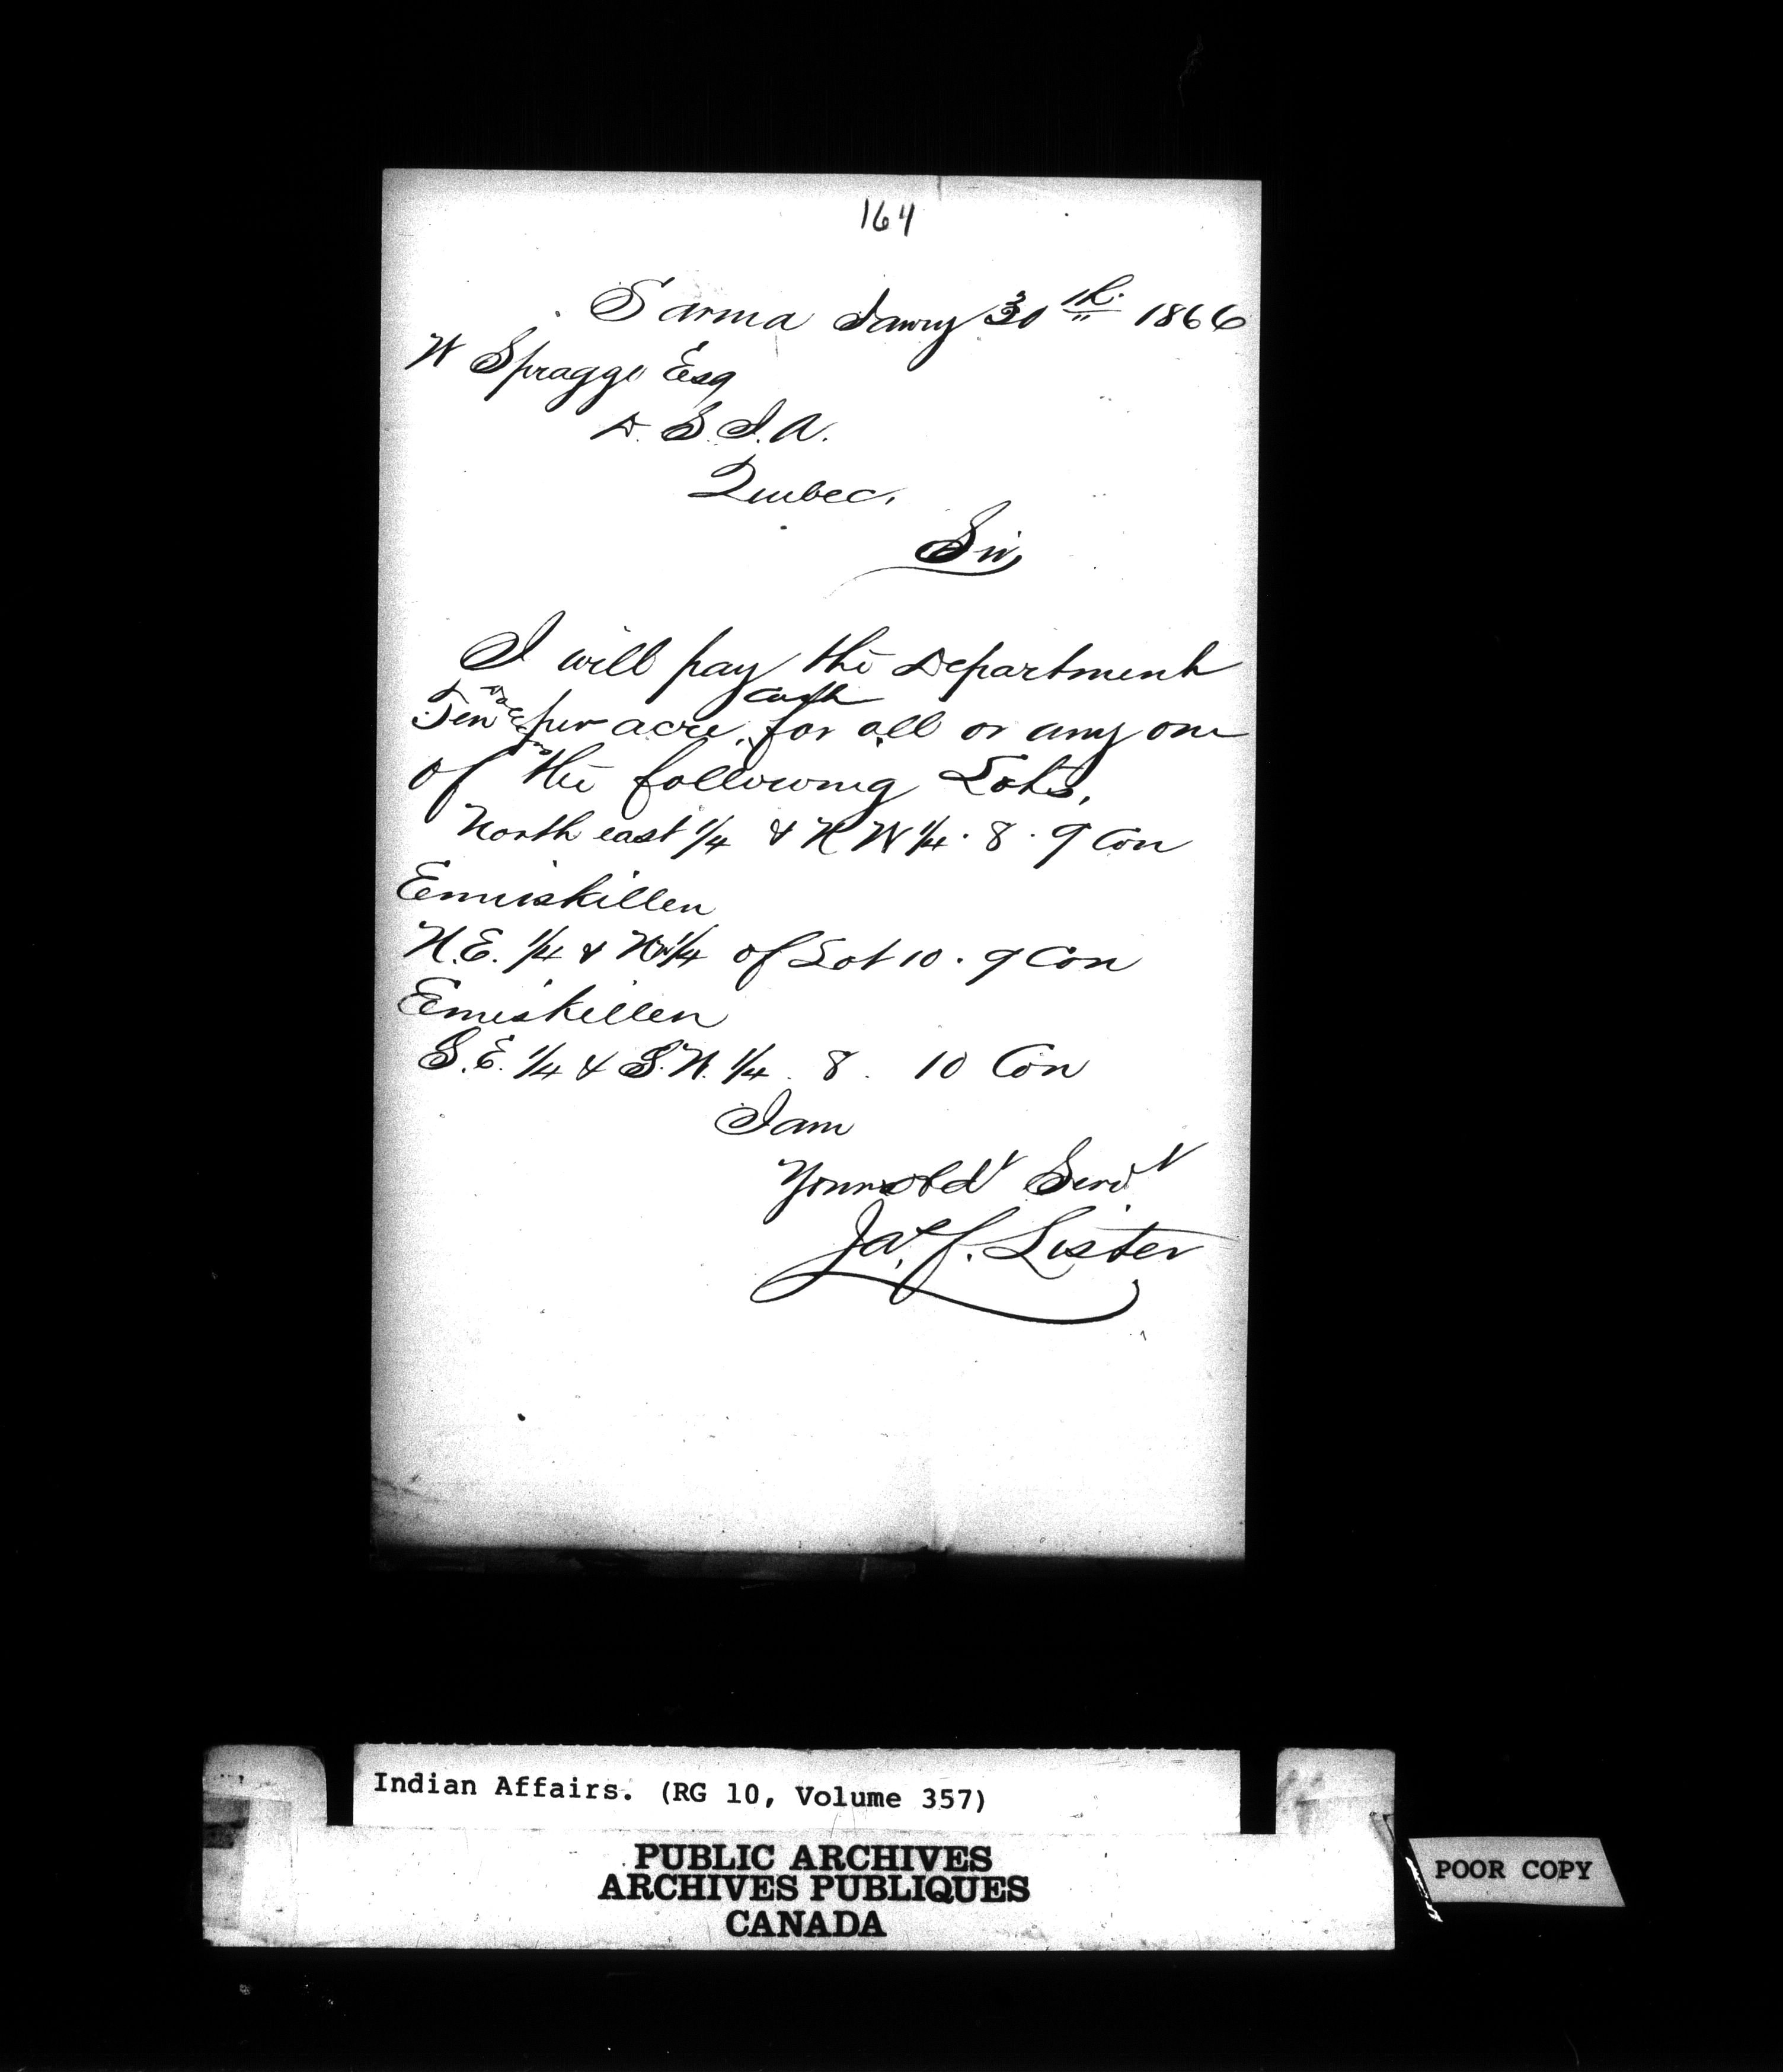 164
Sarnia Jany 30th 1866
W Spragge Esq
D. S. I. A.
Quebec.
Sir,
I will pay the Department
Ten dollars per acre, cash for all or any one
of the following Lots,
North east 1/4 & N W 1/4. 8. 9 Con
Enniskillen
N.E. 1/4 & NW 1/4 of Lot 10. 9 Con
Enniskillen
S.E. 1/4 & S.W. 1/4. 8. 10 Con
I am
Your obdt Servt
Jas. F. Lister
Indian Affairs. (RG 10, Volume 357)
PUBLIC ARCHIVES
ARCHIVES PUBLIQUES
CANADA
POOR COPY